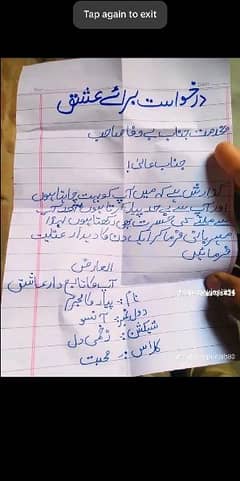 Tap again to exit
درخواست برائے عشق
بخدمت جناب بے وفا صاحب
جناب عالی!
گزارش ہے کہ میں آپ کو بہت چاہتا ہوں
اور آپ سے
کی حسرت بھی رکھتا ہوں لہذا
مہربانی فرما کر ایک دن کا دیدار عنایت
فرمائیں
العارض
آپ کا تابع دار عاشق
نام: پیار کا مجرم
رول نمبر: آنسو
سیکشن: زخمی دل
کلاس: محبت